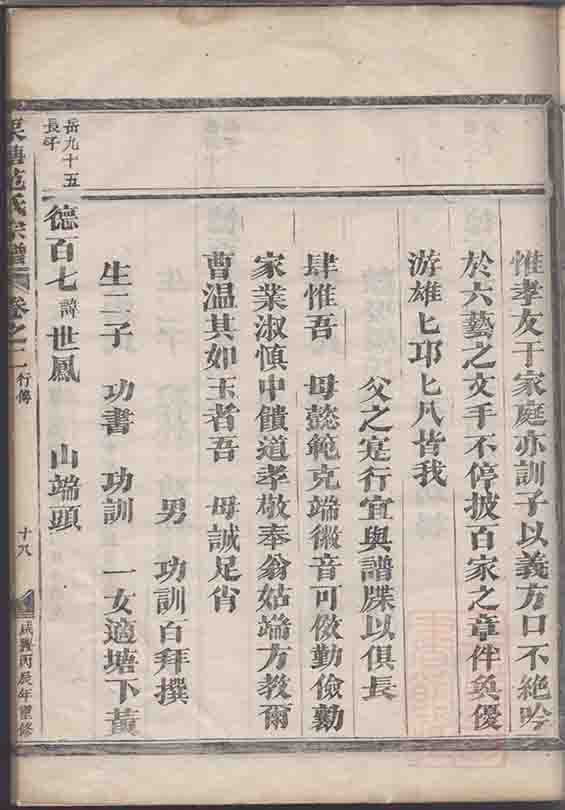 惟孝友于家庭亦訓子以義方口不絶吟
於六藝之文手不停披百家之章伴奐優
游雄七邛七凡皆我
父之寔行宜與譜牒以俱長
肆惟吾 母懿範克端徽音可傚勤儉勷
家業淑慎中饋道孝敬奉翁姑端方教爾
曹温其如玉者吾 母誠足省
男 功訓百拜撰
生二子 功書 功訓 一女適塘下黃
岳九十五
長子
德百七 諱世鳳 山端頭
氏宗譜 卷之二 行傳 十八 咸豐丙辰年重修